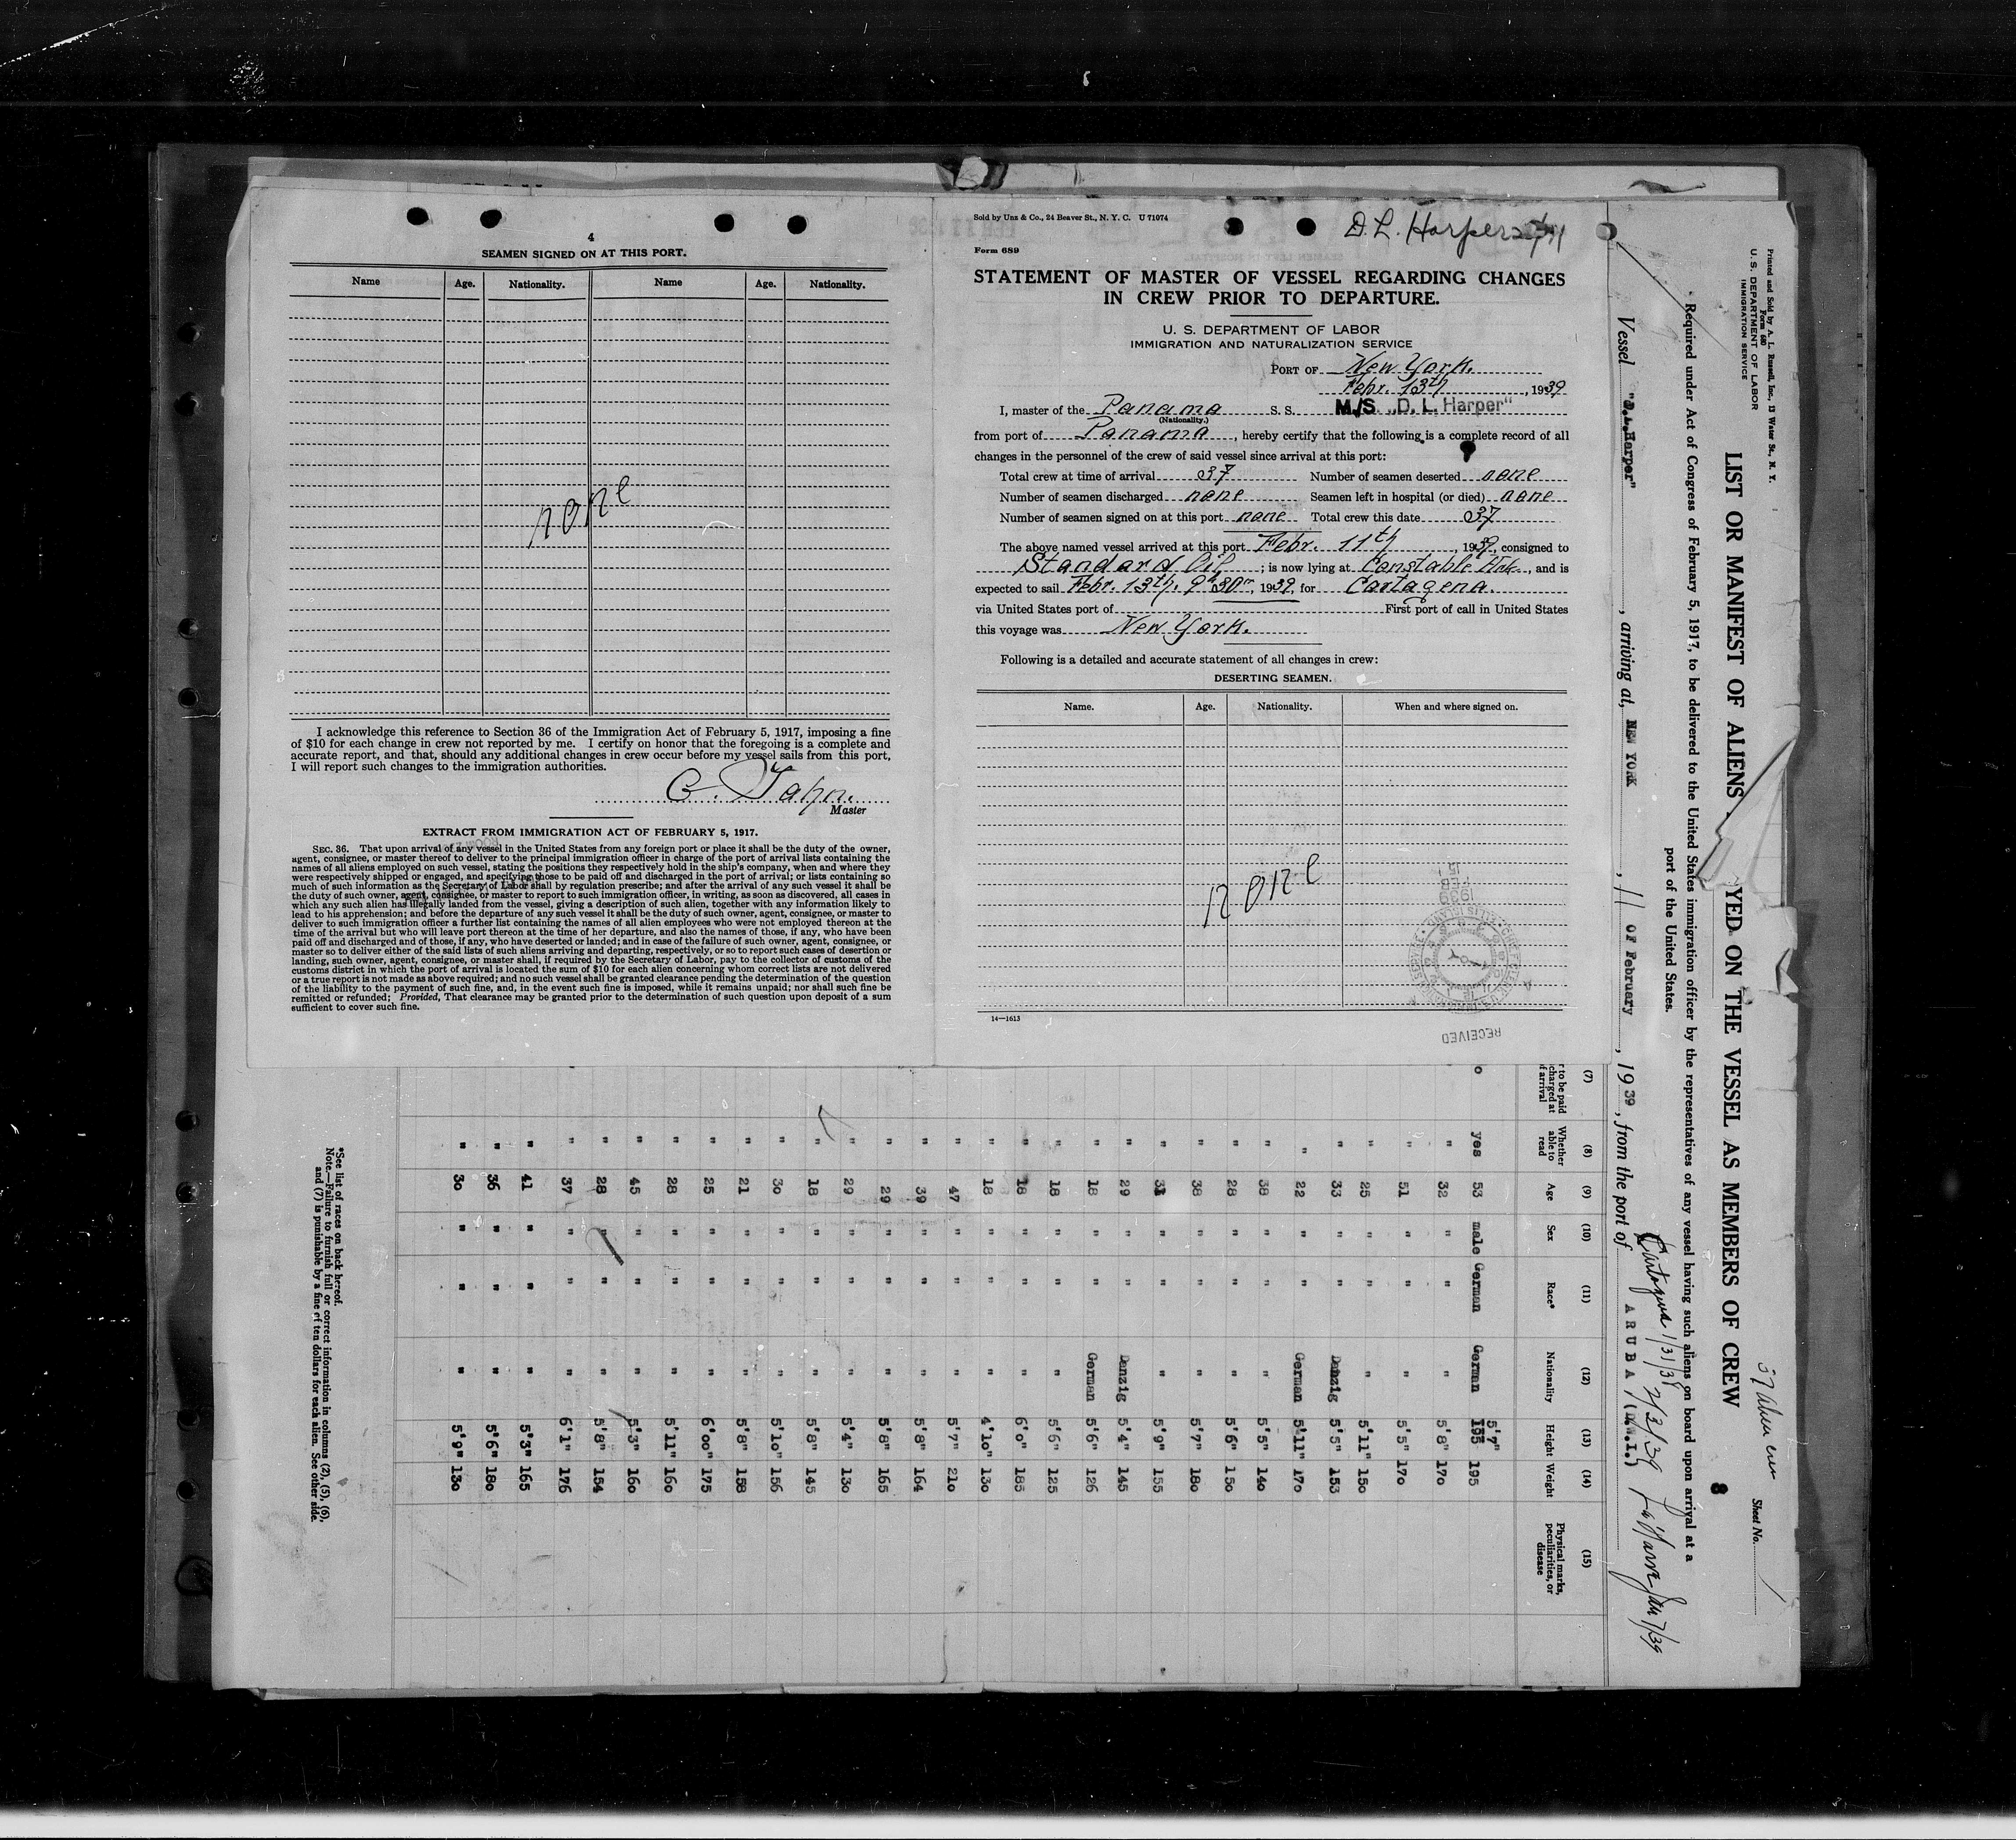 4
SEAMEN SIGNED ON AT THIS PORT.
Name Age. Nationality. Name Age. Nationality.
none
I acknowledge this reference to Section 36 of the Immigration Act of February 5, 1917, imposing a fine
of $10 for each change in crew not reported by me. I certify on honor that the foregoing is a complete and
accurate report, and that, should any additional changes in crew occur before my vessel sails from this port,
I will report such changes to the immigration authorities.
Master
EXTRACT FROM IMMIGRATION ACT OF FEBRUARY 5, 1917.
SEC. 36. That upon arrival of any vessel in the United States from any foreign port or place it shall be the duty of the owner,
agent, consignee, or master thereof to deliver to the principal immigration officer in charge of the port of arrival lists containing the
names of all aliens employed on such vessel, stating the positions they respectively hold in the ship's company, when and where they
were respectively shipped or engaged, and specifying those to be paid off and discharged in the port of arrival; or lists containing so
much of such information as the Secretary of Labor shall by regulation prescribe; and after the arrival of any such vessel it shall be
the duty of such owner, agent, consignee, or master to report to such immigration officer, in writing, as soon as discovered, all cases in
which any such alien has illegally landed from the vessel, giving a description of such alien, together with any information likely to
lead to his apprehension; and before the departure of any such vessel it shall be the duty of such owner, agent, consignee, or master to
deliver to such immigration officer a further list containing the names of all alien employees who were not employed thereon at the
time of the arrival but who will leave port thereon at the time of her departure, and also the names of those, if any, who have been
paid off and discharged and of those, if any, who have deserted or landed; and in case of the failure of such owner, agent, consignee, or
master so to deliver either of the said lists of such aliens arriving and departing, respectively, or so to report such cases of desertion or
landing, such owner, agent, consignee, or master shall, if required by the Secretary of Labor, pay to the collector of customs of the
customs district in which the port of arrival is located the sum of $10 for each alien concerning whom correct lists are not delivered
or a true report is not made as above required; and no such vessel shall be granted clearance pending the determination of the question
of the liability to the payment of such fine, and, in the event such fine is imposed, while it remains unpaid; nor shall such fine be
remitted or refunded; Provided, That clearance may be granted prior to the determination of such question upon deposit of a sum
sufficient to cover such fine.
Sold by Unz & Co., 24 Beaver St., N. Y. C. U 71074
D. L. Harper
Form 689
STATEMENT OF MASTER OF VESSEL REGARDING CHANGES
IN CREW PRIOR TO DEPARTURE.
U. S. DEPARTMENT OF LABOR
IMMIGRATION AND NATURALIZATION SERVICE
PORT OF New York.
Febr. 13th, 1939
I, master of the Panama S. S. M/S. „D. L. Harper"
(Nationality.)
from port of Panama, hereby certify that the following is a complete record of all
changes in the personnel of the crew of said vessel since arrival at this port:
Total crew at time of arrival 37 Number of seamen deserted none
Number of seamen discharged none Seamen left in hospital (or died) none
Number of seamen signed on at this port none Total crew this date 37
The above named vessel arrived at this port Febr. 11th, 1939, consigned to
Standard Oil; is now lying at Constable Hook, and is
expected to sail Febr. 13th, 9h30m, 1939, for Cartagena.
via United States port of First port of call in United States
this voyage was New York.
Following is a detailed and accurate statement of all changes in crew:
DESERTING SEAMEN.
Name. Age. Nationality. When and where signed on.
none
14—1613
RECEIVED
1939 FEB 15
Printed and Sold by A. L. Russell, Inc., 13 Water St., N. Y.
Form 680
U. S. DEPARTMENT OF LABOR
IMMIGRATION SERVICE
37 Alien crew
Sheet No. 1
8
LIST OR MANIFEST OF ALIENS YED ON THE VESSEL AS MEMBERS OF CREW
Required under Act of Congress of February 5, 1917, to be delivered to the United States immigration officer by the representatives of any vessel having such aliens on board upon arrival at a
port of the United States.
Vessel "D.L.Harper", arriving at, NEW YORK, 11 OF February, 1939, from the port of ARUBA (N.W.I.)
Cartagena 1/31/39 2/3/39
(7) (8) (9) (10) (11) (12) (13) (14) (15)
r to be paid charged at f arrival
Whether able to read
Age
Sex
Race*
Nationality
Height
Weight
Physical marks, peculiarities, or disease
o yes 53 male German German 5'7" 195
" 32 " " " 5'8" 170
" 51 " " " 5'5" 170
" 25 " " " 5'11" 150
" 33 " " Danzig 5'5" 153
" 22 " " German 5'11" 170
" 38 " " " 5'5" 140
" 28 " " " 5'6" 150
" 38 " " " 5'7" 180
" " " " 5'9" 155
" 29 " " Danzig 5'4" 145
" 18 " " German 5'6" 126
" 18 " " " 5'6" 125
" 18 " " " 6'0" 185
" 18 " " " 4'10" 130
" 47 " " " 5'7" 210
" 39 " " " 5'8" 164
" 29 " " " 5'8" 165
" 29 " " " 5'4" 130
" 18 " " " 5'8" 145
" 30 " " " 5'10" 156
" 21 " " " 5'8" 158
" 25 " " " 6'00" 175
" 28 " " " 5'11" 160
" 45 " " " 5'3" 160
" 28 " " " 5'8" 154
" 37 " " " 6'1" 176
" 41 " " " 5'3" 165
" 36 " " " 5'6" 180
" 30 " " " 5'9" 130
*See list of races on back hereof.
Note.—Failure to furnish full or correct information in columns (2), (5), (6),
and (7) is punishable by a fine of ten dollars for each alien. See other side.